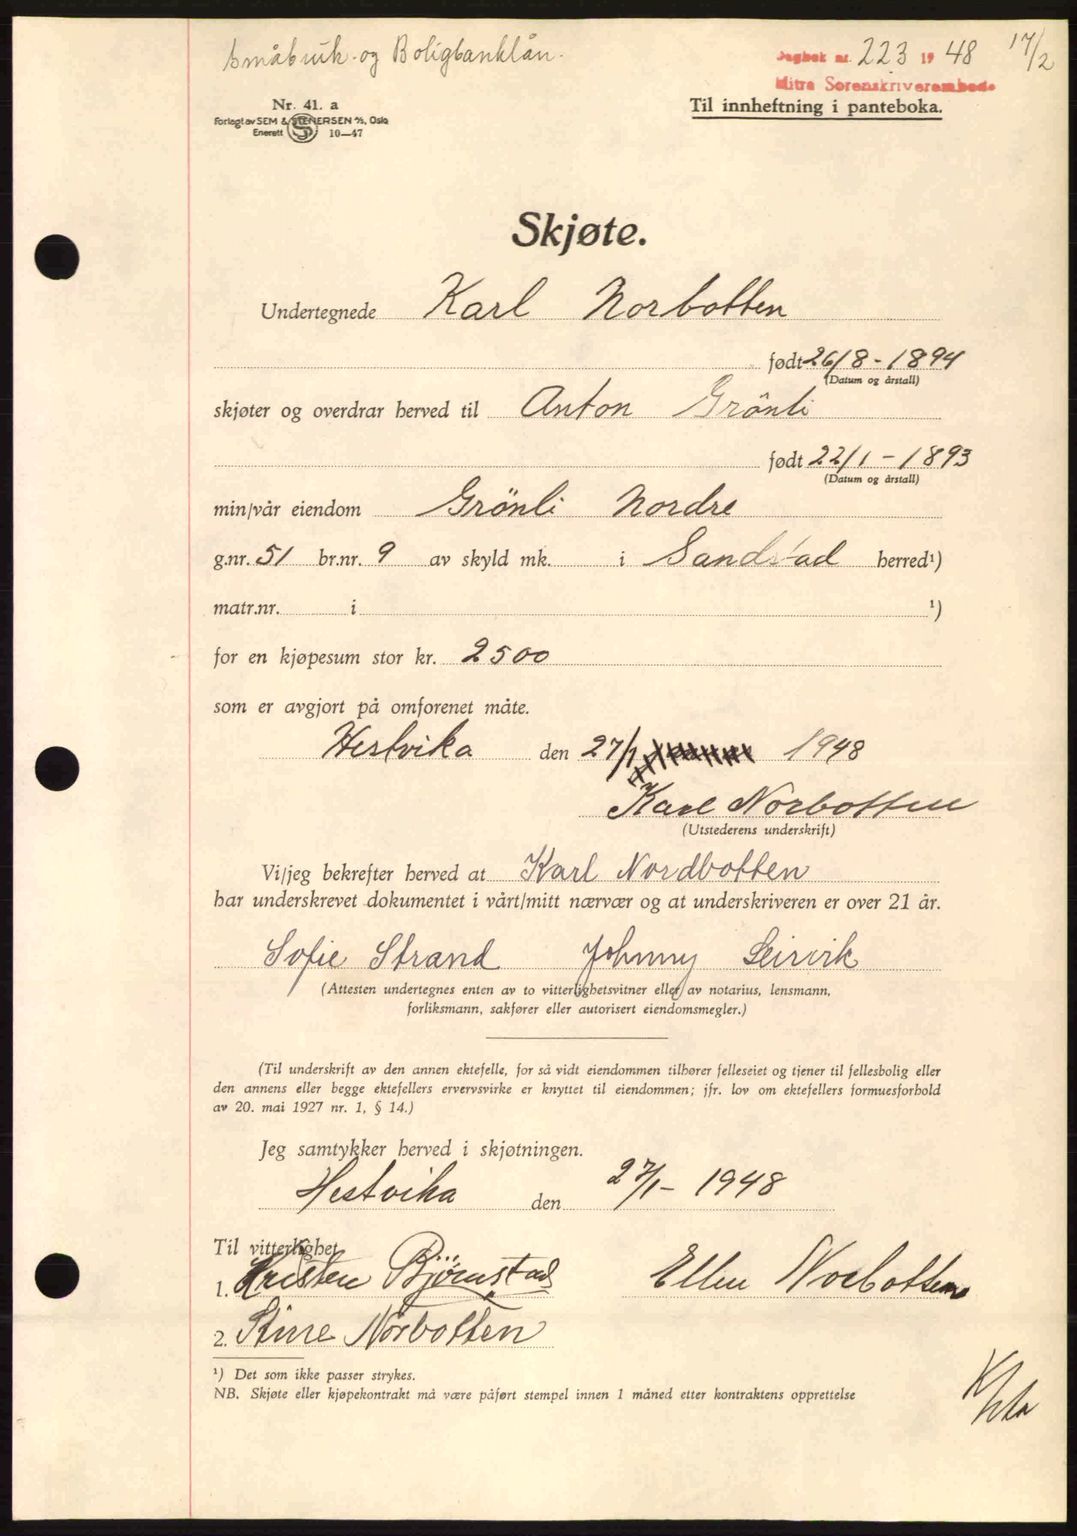 Småbruk- og Boligbanklån.
Dagbok nr. 223 1948 17/2
Hitra Sorenskriverembede
Nr. 41. a
Forlagt av SEM & STENERSEN A/S, Oslo
Enerett 10—47
Til innheftning i panteboka.
Skjøte.
Undertegnede Karl Norbotten
født 26/8 - 1894
(Datum og årstall)
skjøter og overdrar herved til Anton Grönli
født 22/1 - 1893
(Datum og årstall)
min/vår eiendom Grönli Nordre
g.nr. 51 br.nr. 9 av skyld mk. i Sandstad herred¹)
matr.nr. i ¹)
for en kjøpesum stor kr. 2500
som er avgjort på omforenet måte.
Hestvika den 27/1 1948
Karl Norbotten
(Utstederens underskrift)
Vi/jeg bekrefter herved at Karl Nordbotten
har underskrevet dokumentet i vårt/mitt nærvær og at underskriveren er over 21 år.
Sofie Strand Johnny Leirvik
(Attesten undertegnes enten av to vitterlighetsvitner eller av notarius, lensmann,
forliksmann, sakfører eller autorisert eiendomsmegler.)
(Til underskrift av den annen ektefelle, for så vidt eiendommen tilhører felleseiet og tjener til fellesbolig eller
den annens eller begge ektefellers ervervsvirke er knyttet til eiendommen; jfr. lov om ektefellers formuesforhold
av 20. mai 1927 nr. 1, § 14.)
Jeg samtykker herved i skjøtningen.
Hestvika den 27/1 - 1948
Til vitterlighet
1. Kristen Björnstad Ellen Norbotten
2. Stine Norbotten
¹) Det som ikke passer strykes.
NB. Skjøte eller kjøpekontrakt må være påført stempel innen 1 måned etter kontraktens opprettelse